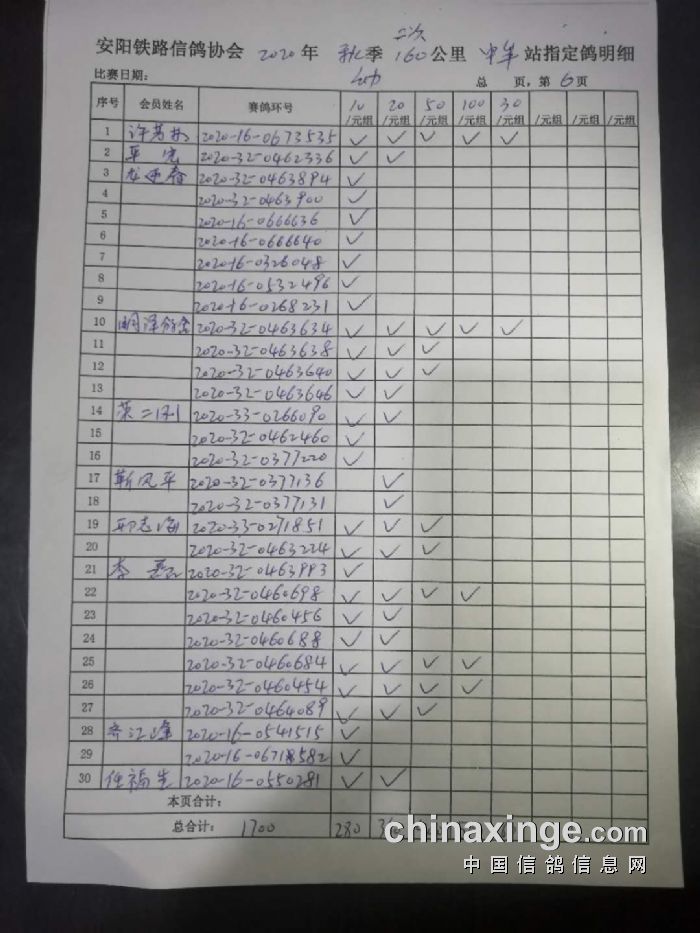 二次
安阳铁路信鸽协会 2020 年 秋季 160公里 站指定鸽明细
比赛日期： 总 页，第 6 页
序号 会员姓名 赛鸽环号 10/元组 20/元组 50/元组 100/元组 30/元组 /元组 /元组 /元组
1 2020-16-0673535 ✓ ✓ ✓ ✓ ✓
2 2020-32-0462336 ✓ ✓
3 2020-32-0463894 ✓
4 2020-32-0463900 ✓
5 2020-16-0666636 ✓
6 2020-16-0666640 ✓
7 2020-16-0326048 ✓
8 2020-16-0532496 ✓
9 2020-16-0268231 ✓
10 2020-32-0463634 ✓ ✓ ✓ ✓ ✓
11 2020-32-0463638 ✓ ✓ ✓
12 2020-32-0463640 ✓ ✓ ✓
13 2020-32-0463646 ✓ ✓
14 2020-33-0266090 ✓ ✓
15 2020-32-0462460 ✓
16 2020-32-0377220 ✓
17 靳风平 2020-32-0377136 ✓
18 2020-32-0377131 ✓
19 邢志海 2020-33-0271851 ✓ ✓ ✓
20 2020-32-0463224 ✓ ✓ ✓
21 李 2020-32-0463993 ✓
22 2020-32-0460698 ✓ ✓ ✓ ✓
23 2020-32-0460456 ✓ ✓
24 2020-32-0460688 ✓ ✓
25 2020-32-0460684 ✓ ✓ ✓ ✓
26 2020-32-0460454 ✓ ✓ ✓ ✓
27 2020-32-0464089 ✓ ✓ ✓
28 齐江峰 2020-16-0541515 ✓
29 2020-16-06718582 ✓
30 任福生 2020-16-0550281 ✓ ✓
本页合计：
总合计： 1700 280
chinaxinge.com
中国信鸽信息网